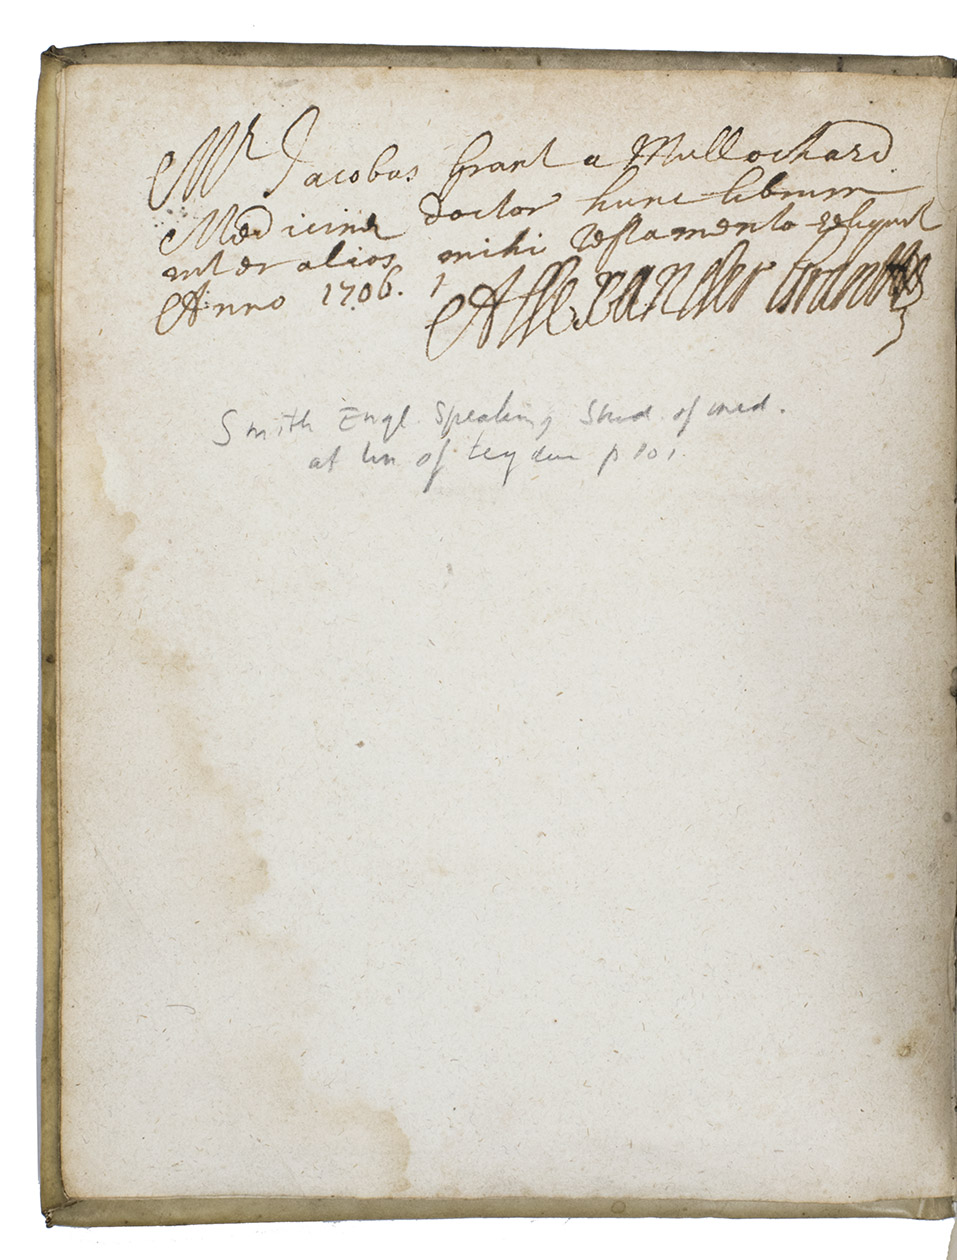 Mr Jacobus Grant a Mullochard
Medicinæ doctor hunc librum
inter alios mihi testamento reliquit
Anno 1706.
Alexander Grant
Smith Engl. Speaking Stud. of med.
at Un. of Leyden p 101.